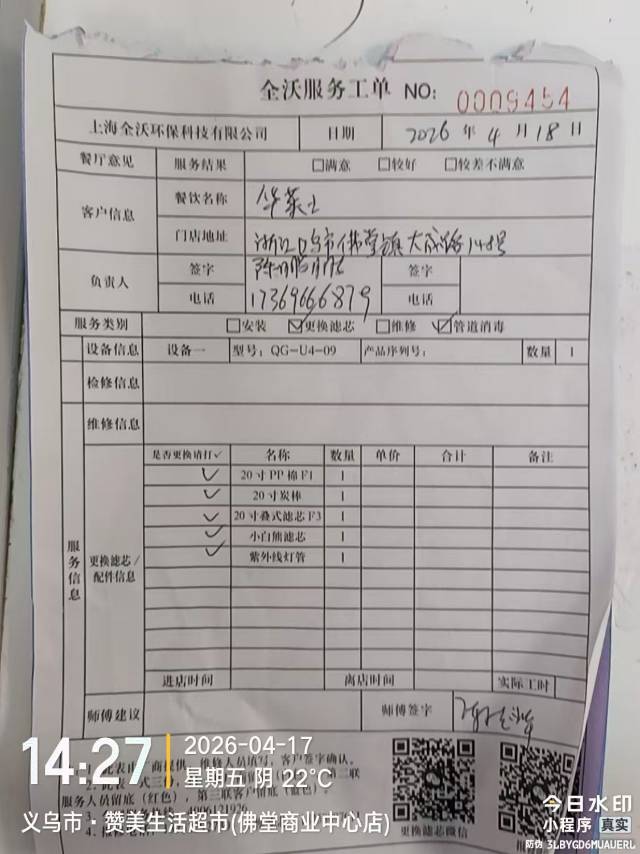 全沃服务工单 NO: 0009454
上海全沃环保科技有限公司 日期 2026 年 4 月 18 日
餐厅意见 服务结果 □满意 □较好 □较差不满意
客户信息 餐饮名称 华莱士
门店地址 浙江义乌市佛堂镇大成路148号
负责人 签字 签字
电话 17369666879 电话
服务类别 □安装 ☑更换滤芯 □维修 ☑管道消毒
服务信息
设备信息 设备一 型号: QG-U4-09 产品序列号: 数量 1
检修信息
维修信息
更换滤芯/配件信息
是否更换请打✓ 名称 数量 单价 合计 备注
✓ 20寸PP棉F1 1
✓ 20寸炭棒 1
✓ 20寸叠式滤芯F3 1
✓ 小白熊滤芯 1
✓ 紫外线灯管 1
进店时间 离店时间 实际工时
师傅建议 师傅签字
服务人员留底(红色),
更换滤芯微信
14:27
2026-04-17
星期五 阴 22℃
义乌市·赞美生活超市(佛堂商业中心店)
今日水印
小程序 真实
防伪 3LBYGD6MUAUERL